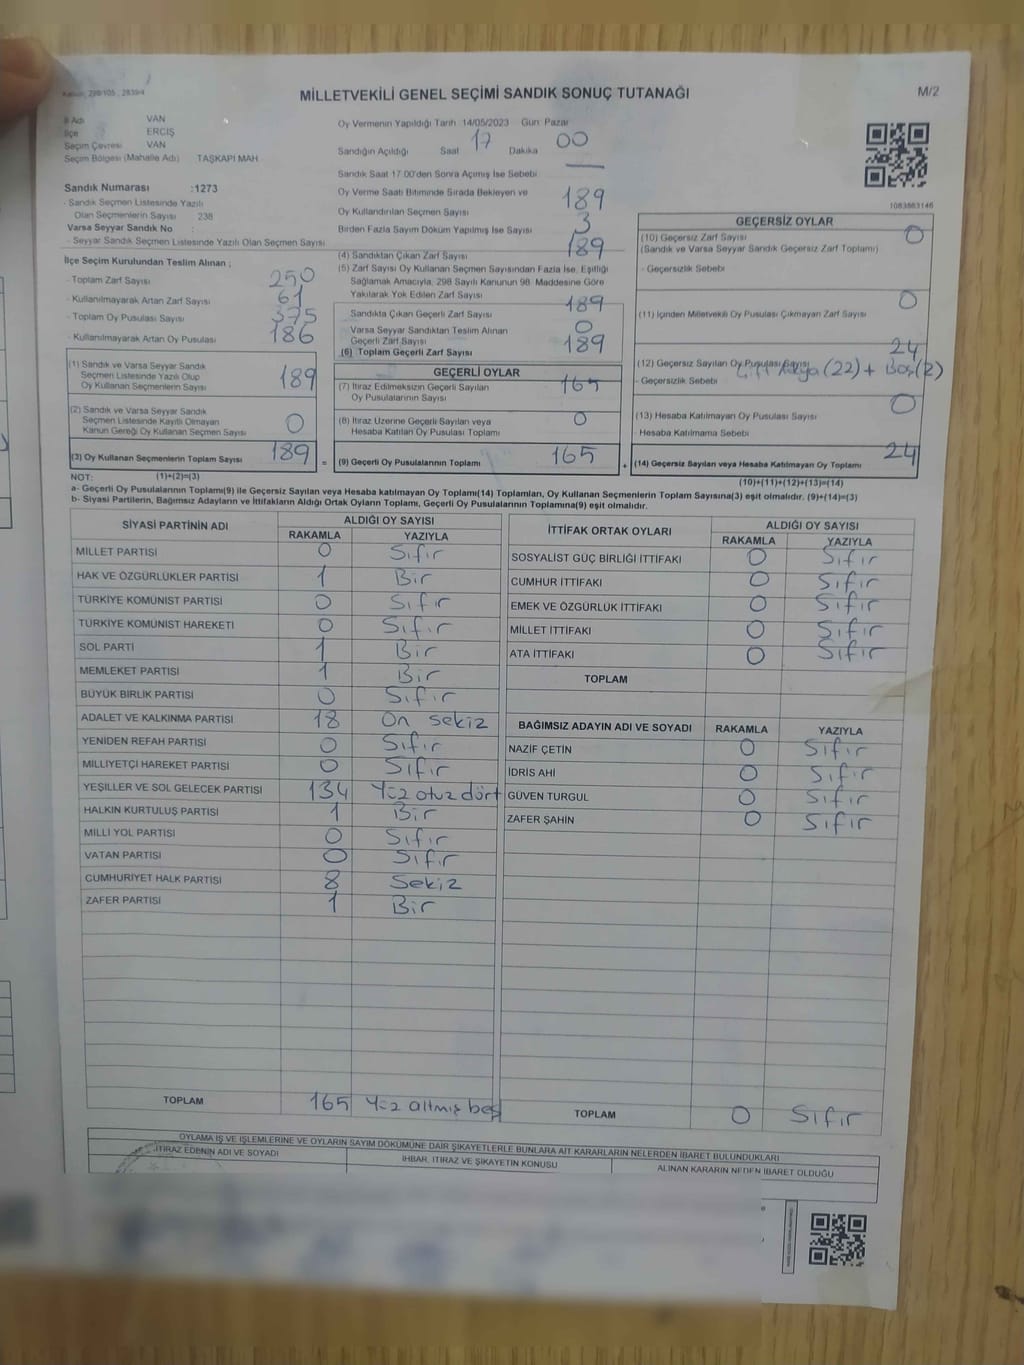 MİLLETVEKİLİ GENEL SEÇİMİ SANDIK SONUÇ TUTANAĞI
M/2
İl Adı VAN
İlçe ERCİŞ
Seçim Çevresi VAN
Seçim Bölgesi (Mahalle Adı) TAŞKAPI MAH.
Sandık Numarası :1273
- Sandık Seçmen Listesinde Yazılı
Olan Seçmenlerin Sayısı 238
Varsa Seyyar Sandık No
- Seyyar Sandık Seçmen Listesinde Yazılı Olan Seçmen Sayısı
İlçe Seçim Kurulundan Teslim Alınan ;
- Toplam Zarf Sayısı 250
- Kullanılmayarak Artan Zarf Sayısı 61
- Toplam Oy Pusulası Sayısı 375
- Kullanılmayarak Artan Oy Pusulası 186
(1) Sandık ve Varsa Seyyar Sandık
Seçmen Listesinde Yazılı Olup
Oy Kullanan Seçmenlerin Sayısı 189
(2) Sandık ve Varsa Seyyar Sandık
Seçmen Listesinde Kayıtlı Olmayan
Kanun Gereği Oy Kullanan Seçmen Sayısı 0
(3) Oy Kullanan Seçmenlerin Toplam Sayısı 189 =
Oy Vermenin Yapıldığı Tarih 14/05/2023 Gün: Pazar
Sandığın Açıldığı Saat 17 Dakika 00
Sandık Saat 17.00'den Sonra Açılmış İse Sebebi —
Oy Verme Saati Bitiminde Sırada Bekleyen ve
Oy Kullandırılan Seçmen Sayısı 189
Birden Fazla Sayım Döküm Yapılmış İse Sayısı 3
(4) Sandıktan Çıkan Zarf Sayısı 189
(5) Zarf Sayısı Oy Kullanan Seçmen Sayısından Fazla İse, Eşitliği
Sağlamak Amacıyla, 298 Sayılı Kanunun 98. Maddesine Göre
Yakılarak Yok Edilen Zarf Sayısı
Sandıkta Çıkan Geçerli Zarf Sayısı 189
Varsa Seyyar Sandıktan Teslim Alınan
Geçerli Zarf Sayısı 0
(6) Toplam Geçerli Zarf Sayısı 189
GEÇERLİ OYLAR
(7) İtiraz Edilmeksizin Geçerli Sayılan
Oy Pusulalarının Sayısı 165
(8) İtiraz Üzerine Geçerli Sayılan veya
Hesaba Katılan Oy Pusulası Toplamı 0
(9) Geçerli Oy Pusulalarının Toplamı 165 +
1083863146
GEÇERSİZ OYLAR
(10) Geçersiz Zarf Sayısı 0
(Sandık ve Varsa Seyyar Sandık Geçersiz Zarf Toplamı)
- Geçersizlik Sebebi
(11) İçinden Milletvekili Oy Pusulası Çıkmayan Zarf Sayısı 0
(12) Geçersiz Sayılan Oy Pusulası Sayısı 24
- Geçersizlik Sebebi (22) + Boş(2)
(13) Hesaba Katılmayan Oy Pusulası Sayısı 0
- Hesaba Katılmama Sebebi
(14) Geçersiz Sayılan veya Hesaba Katılmayan Oy Toplamı 24
NOT: (1)+(2)=(3) (10)+(11)+(12)+(13)=(14)
a- Geçerli Oy Pusulalarının Toplamı(9) ile Geçersiz Sayılan veya Hesaba katılmayan Oy Toplamı(14) Toplamları, Oy Kullanan Seçmenlerin Toplam Sayısına(3) eşit olmalıdır. (9)+(14)=(3)
b- Siyasi Partilerin, Bağımsız Adayların ve İttifakların Aldığı Ortak Oyların Toplamı, Geçerli Oy Pusulalarının Toplamına(9) eşit olmalıdır.
SİYASİ PARTİNİN ADI ALDIĞI OY SAYISI
RAKAMLA YAZIYLA
MİLLET PARTİSİ 0 Sıfır
HAK VE ÖZGÜRLÜKLER PARTİSİ 1 Bir
TÜRKİYE KOMÜNİST PARTİSİ 0 Sıfır
TÜRKİYE KOMÜNİST HAREKETİ 0 Sıfır
SOL PARTİ 1 Bir
MEMLEKET PARTİSİ 1 Bir
BÜYÜK BİRLİK PARTİSİ 0 Sıfır
ADALET VE KALKINMA PARTİSİ 18 On sekiz
YENİDEN REFAH PARTİSİ 0 Sıfır
MİLLİYETÇİ HAREKET PARTİSİ 0 Sıfır
YEŞİLLER VE SOL GELECEK PARTİSİ 134 Yüz otuz dört
HALKIN KURTULUŞ PARTİSİ 1 Bir
MİLLİ YOL PARTİSİ 0 Sıfır
VATAN PARTİSİ 0 Sıfır
CUMHURİYET HALK PARTİSİ 8 Sekiz
ZAFER PARTİSİ 1 Bir
TOPLAM 165 Yüz altmış beş
İTTİFAK ORTAK OYLARI ALDIĞI OY SAYISI
RAKAMLA YAZIYLA
SOSYALİST GÜÇ BİRLİĞİ İTTİFAKI 0 Sıfır
CUMHUR İTTİFAKI 0 Sıfır
EMEK VE ÖZGÜRLÜK İTTİFAKI 0 Sıfır
MİLLET İTTİFAKI 0 Sıfır
ATA İTTİFAKI 0 Sıfır
TOPLAM
BAĞIMSIZ ADAYIN ADI VE SOYADI RAKAMLA YAZIYLA
NAZİF ÇETİN 0 Sıfır
İDRİS AHİ 0 Sıfır
GÜVEN TURGUL 0 Sıfır
ZAFER ŞAHİN 0 Sıfır
TOPLAM 0 Sıfır
OYLAMA İŞ VE İŞLEMLERİNE VE OYLARIN SAYIM DÖKÜMÜNE DAİR ŞİKAYETLERLE BUNLARA AİT KARARLARIN NELERDEN İBARET BULUNDUKLARI
İTİRAZ EDENİN ADI VE SOYADI İHBAR, İTİRAZ VE ŞİKAYETİN KONUSU ALINAN KARARIN NEDEN İBARET OLDUĞU